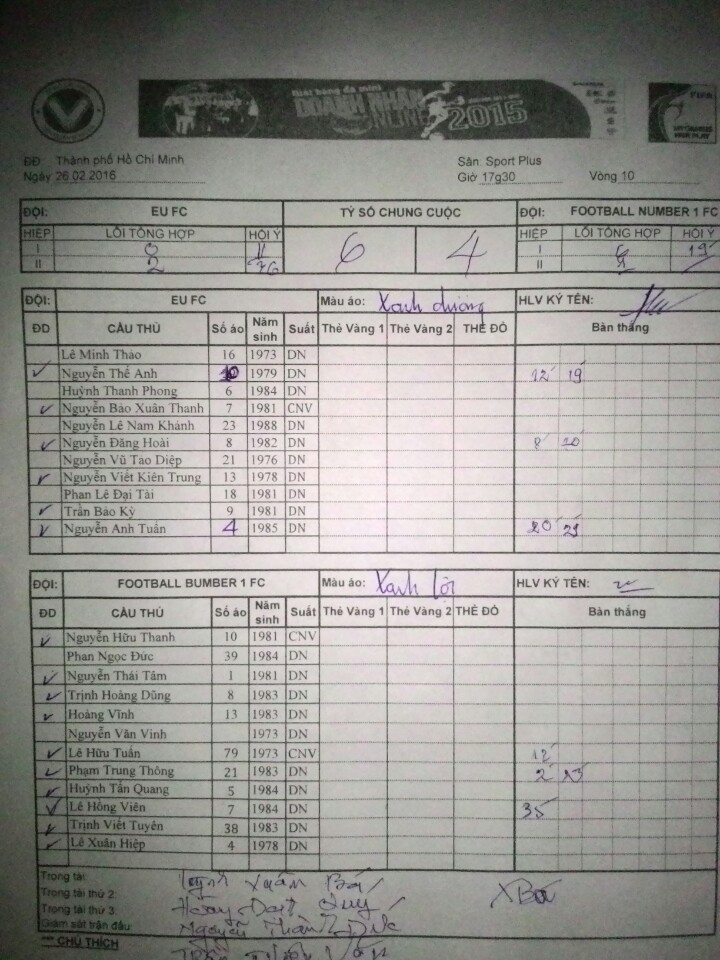 Giải bóng đá mini
DOANH NHÂN
ONLINE
2015
FIFA
ĐĐ Thành phố Hồ Chí Minh Sân: Sport Plus
Ngày 26.02.2016 Giờ 17g30 Vòng 10
ĐỘI: EU FC TỶ SỐ CHUNG CUỘC ĐỘI: FOOTBALL NUMBER 1 FC
HIỆP LỖI TỔNG HỢP HỘI Ý 6 4 HIỆP LỖI TỔNG HỢP HỘI Ý
I I 19'
II 2 II
ĐỘI: EU FC Màu áo: Xanh dương HLV KÝ TÊN:
ĐD CẦU THỦ Số áo Năm sinh Suất Thẻ Vàng 1 Thẻ Vàng 2 THẺ ĐỎ Bàn thắng
Lê Minh Thảo 16 1973 DN
Nguyễn Thế Anh 10 1979 DN 12' 19'
Huỳnh Thanh Phong 6 1984 DN
Nguyễn Bảo Xuân Thanh 7 1981 CNV
Nguyễn Lê Nam Khánh 23 1988 DN
Nguyễn Đăng Hoài 8 1982 DN
Nguyễn Vũ Tao Diệp 21 1976 DN
Nguyễn Viết Kiên Trung 13 1978 DN
Phan Lê Đại Tài 18 1981 DN
Trần Bảo Kỳ 9 1981 DN
Nguyễn Anh Tuấn 4 1985 DN 20'
ĐỘI: FOOTBALL BUMBER 1 FC Màu áo: Xanh lợt HLV KÝ TÊN:
ĐD CẦU THỦ Số áo Năm sinh Suất Thẻ Vàng 1 Thẻ Vàng 2 THẺ ĐỎ Bàn thắng
Nguyễn Hữu Thanh 10 1981 CNV
Phan Ngọc Đức 39 1984 DN
Nguyễn Thái Tâm 1 1981 DN
Trịnh Hoàng Dũng 8 1983 DN
Hoàng Vĩnh 13 1983 DN
Nguyễn Văn Vinh 1973 DN
Lê Hữu Tuấn 79 1973 CNV 12'
Phạm Trung Thông 21 1983 DN 2'
Huỳnh Tấn Quang 5 1984 DN
Lê Hồng Viên 7 1984 DN 35'
Trịnh Viết Tuyên 38 1983 DN
Lê Xuân Hiệp 4 1978 DN
Trọng tài: Huỳnh Xuân Bá XBá
Trọng tài thứ 2: Quý
Trọng tài thứ 3: Nguyễn Thành Đức
Giám sát trận đấu:
*** CHÚ THÍCH